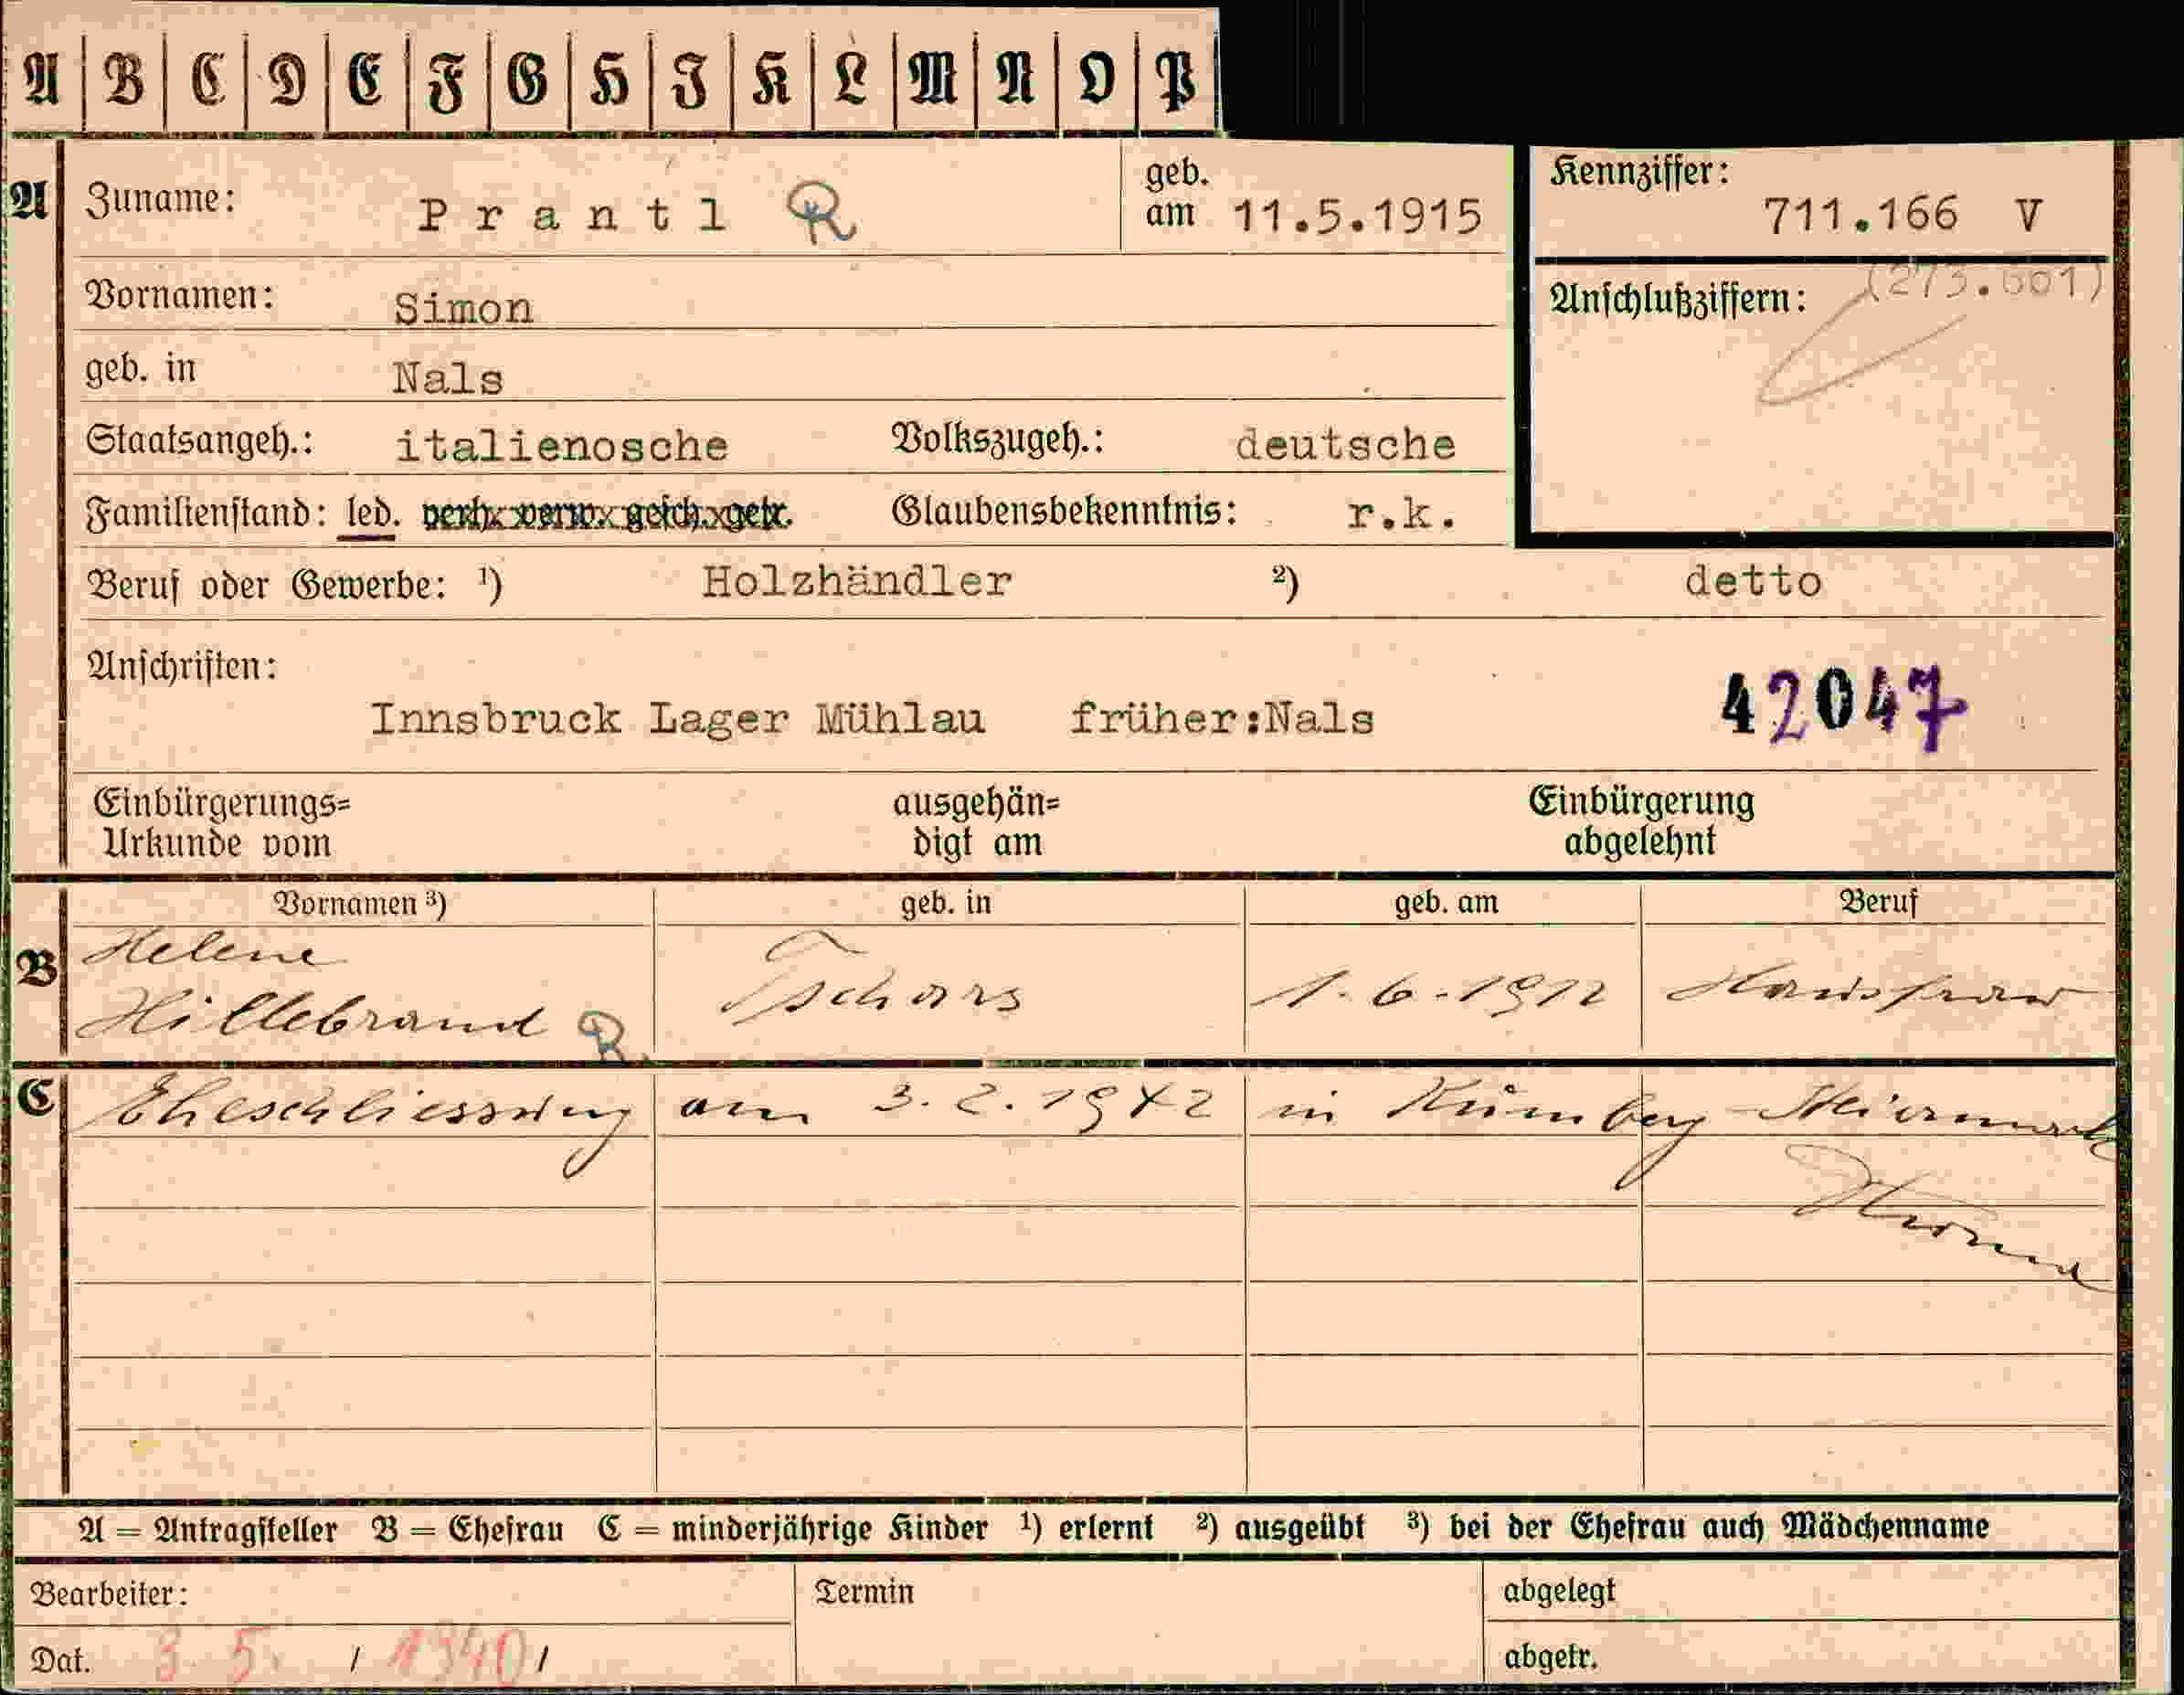 A B C D E F G H I K L M N O P
A Zuname: Prantl R geb. am 11.5.1915 Kennziffer: 711.166 V
Vornamen: Simon Anschlußziffern: (273.601)
geb. in Nals
Staatsangeh.: italienosche Volkszugeh.: deutsche
Familienstand: led. verh. verw. gesch. getr. Glaubensbekenntnis: r.k.
Beruf oder Gewerbe: ¹) Holzhändler ²) detto
Anschriften:
Innsbruck Lager Mühlau früher:Nals 42047
Einbürgerungs= ausgehän= Einbürgerung
Urkunde vom digt am abgelehnt
Vornamen ³) geb. in geb. am Beruf
B Helene
Hillebrand R. Tschars 1.6.1912 Hausfrau
C Eheschliessung am 3.2.1942 in Steiermark
A = Antragsteller B = Ehefrau C = minderjährige Kinder ¹) erlernt ²) ausgeübt ³) bei der Ehefrau auch Mädchenname
Bearbeiter: Termin abgelegt
Dat. 3. 5. / 1940 / abgetr.